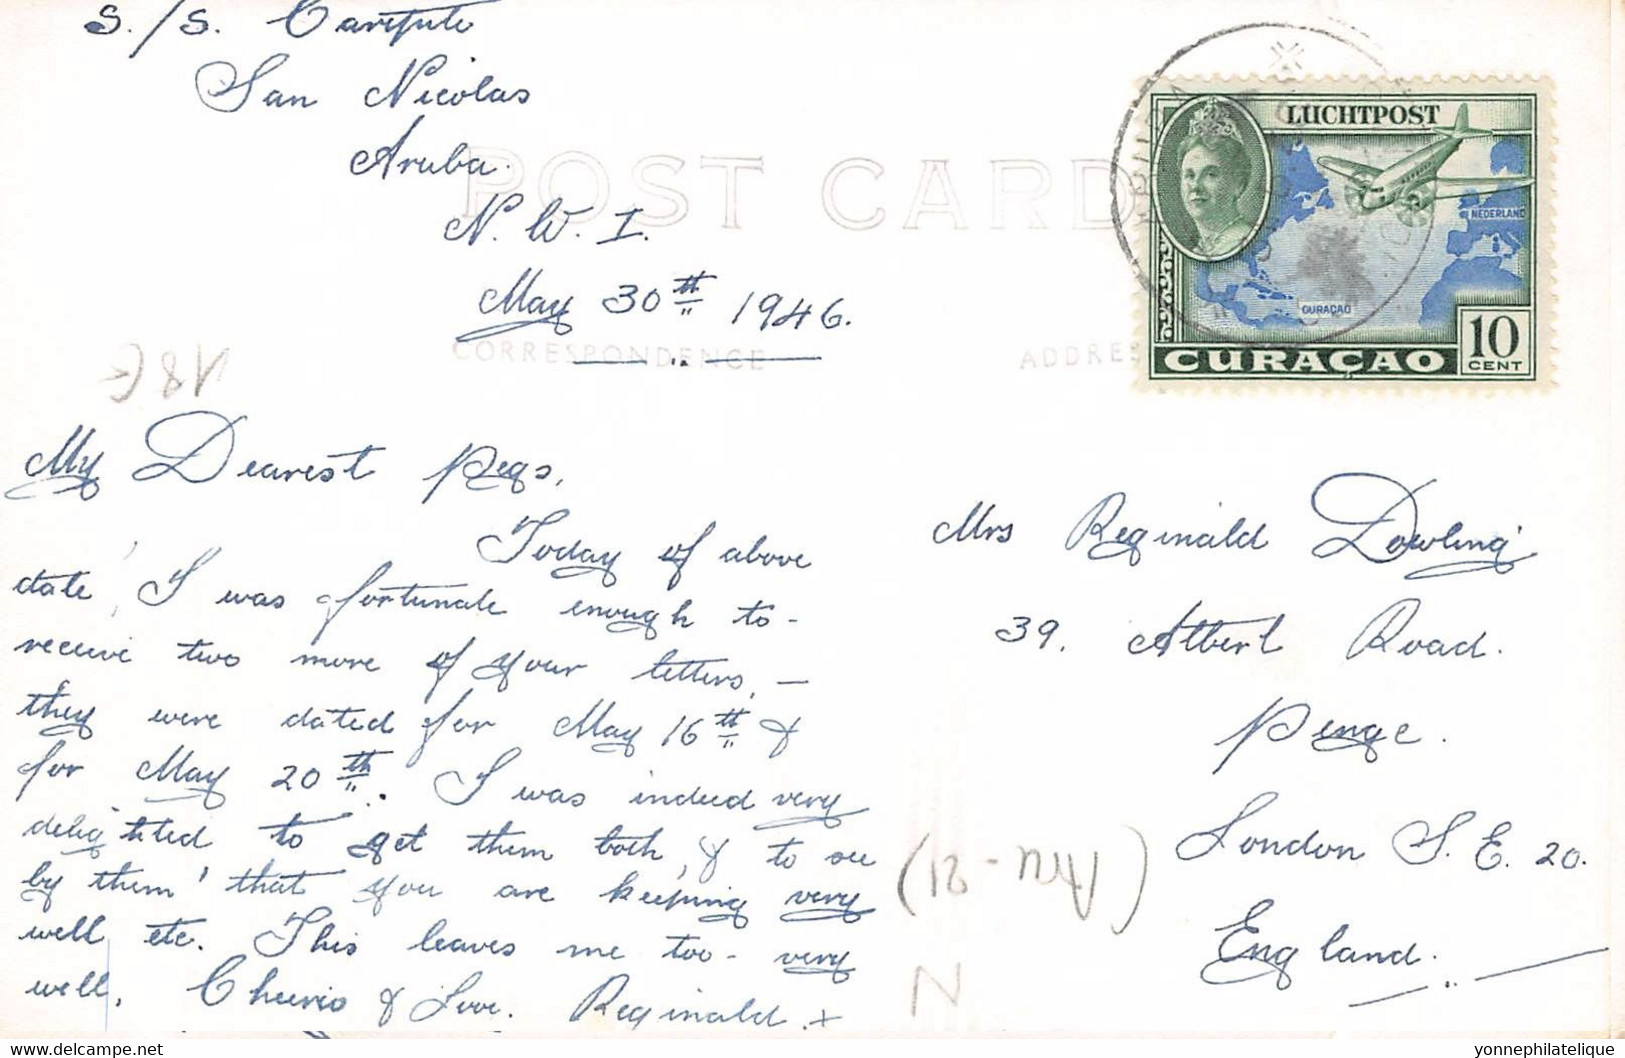 S./S.
San Nicolas
Aruba.
N. W. I.
May 30th 1946.
POST CARD
CORRESPONDENCE
ADDRES
LUCHTPOST
NEDERLAND
CURAÇAO
CURAÇAO
10
CENT
My Dearest Pegs,
Today of above
date, I was fortunate enough to-
receive two more of your letters, —
they were dated for May 16th &
for May 20th. I was indeed very
delighted to get them both, & to see
by them' that you are keeping very
well, etc. This leaves me too- very
well, Cheerio & Love. Reginald. x
Mrs Reginald Dowling
39. Albert Road.
Penge.
London S. E. 20.
England.
18€
(Aru-21)
N
delcampe.net
yonnephilatelique